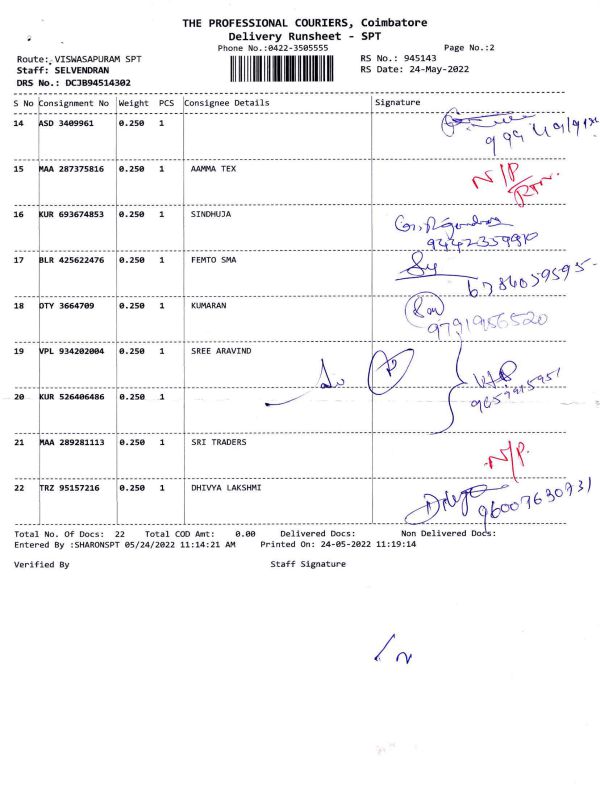 THE PROFESSIONAL COURIERS, Coimbatore
Delivery Runsheet - SPT
Phone No.:0422-3505555 Page No.:2
Route: VISWASAPURAM SPT RS No.: 945143
Staff: SELVENDRAN RS Date: 24-May-2022
DRS No.: DCJB94514302
S No Consignment No Weight PCS Consignee Details Signature
14 ASD 3409961 0.250 1
15 MAA 287375816 0.250 1 AAMMA TEX N/P
16 KUR 693674853 0.250 1 SINDHUJA
17 BLR 425622476 0.250 1 FEMTO SMA
6384059595
18 DTY 3664709 0.250 1 KUMARAN
9791956520
19 VPL 934202004 0.250 1 SREE ARAVIND
20 KUR 526406486 0.250 1
21 MAA 289281113 0.250 1 SRI TRADERS N/P.
22 TRZ 95157216 0.250 1 DHIVYA LAKSHMI
96007630931
Total No. Of Docs: 22 Total COD Amt: 0.00 Delivered Docs: Non Delivered Docs:
Entered By :SHARONSPT 05/24/2022 11:14:21 AM Printed On: 24-05-2022 11:19:14
Verified By Staff Signature